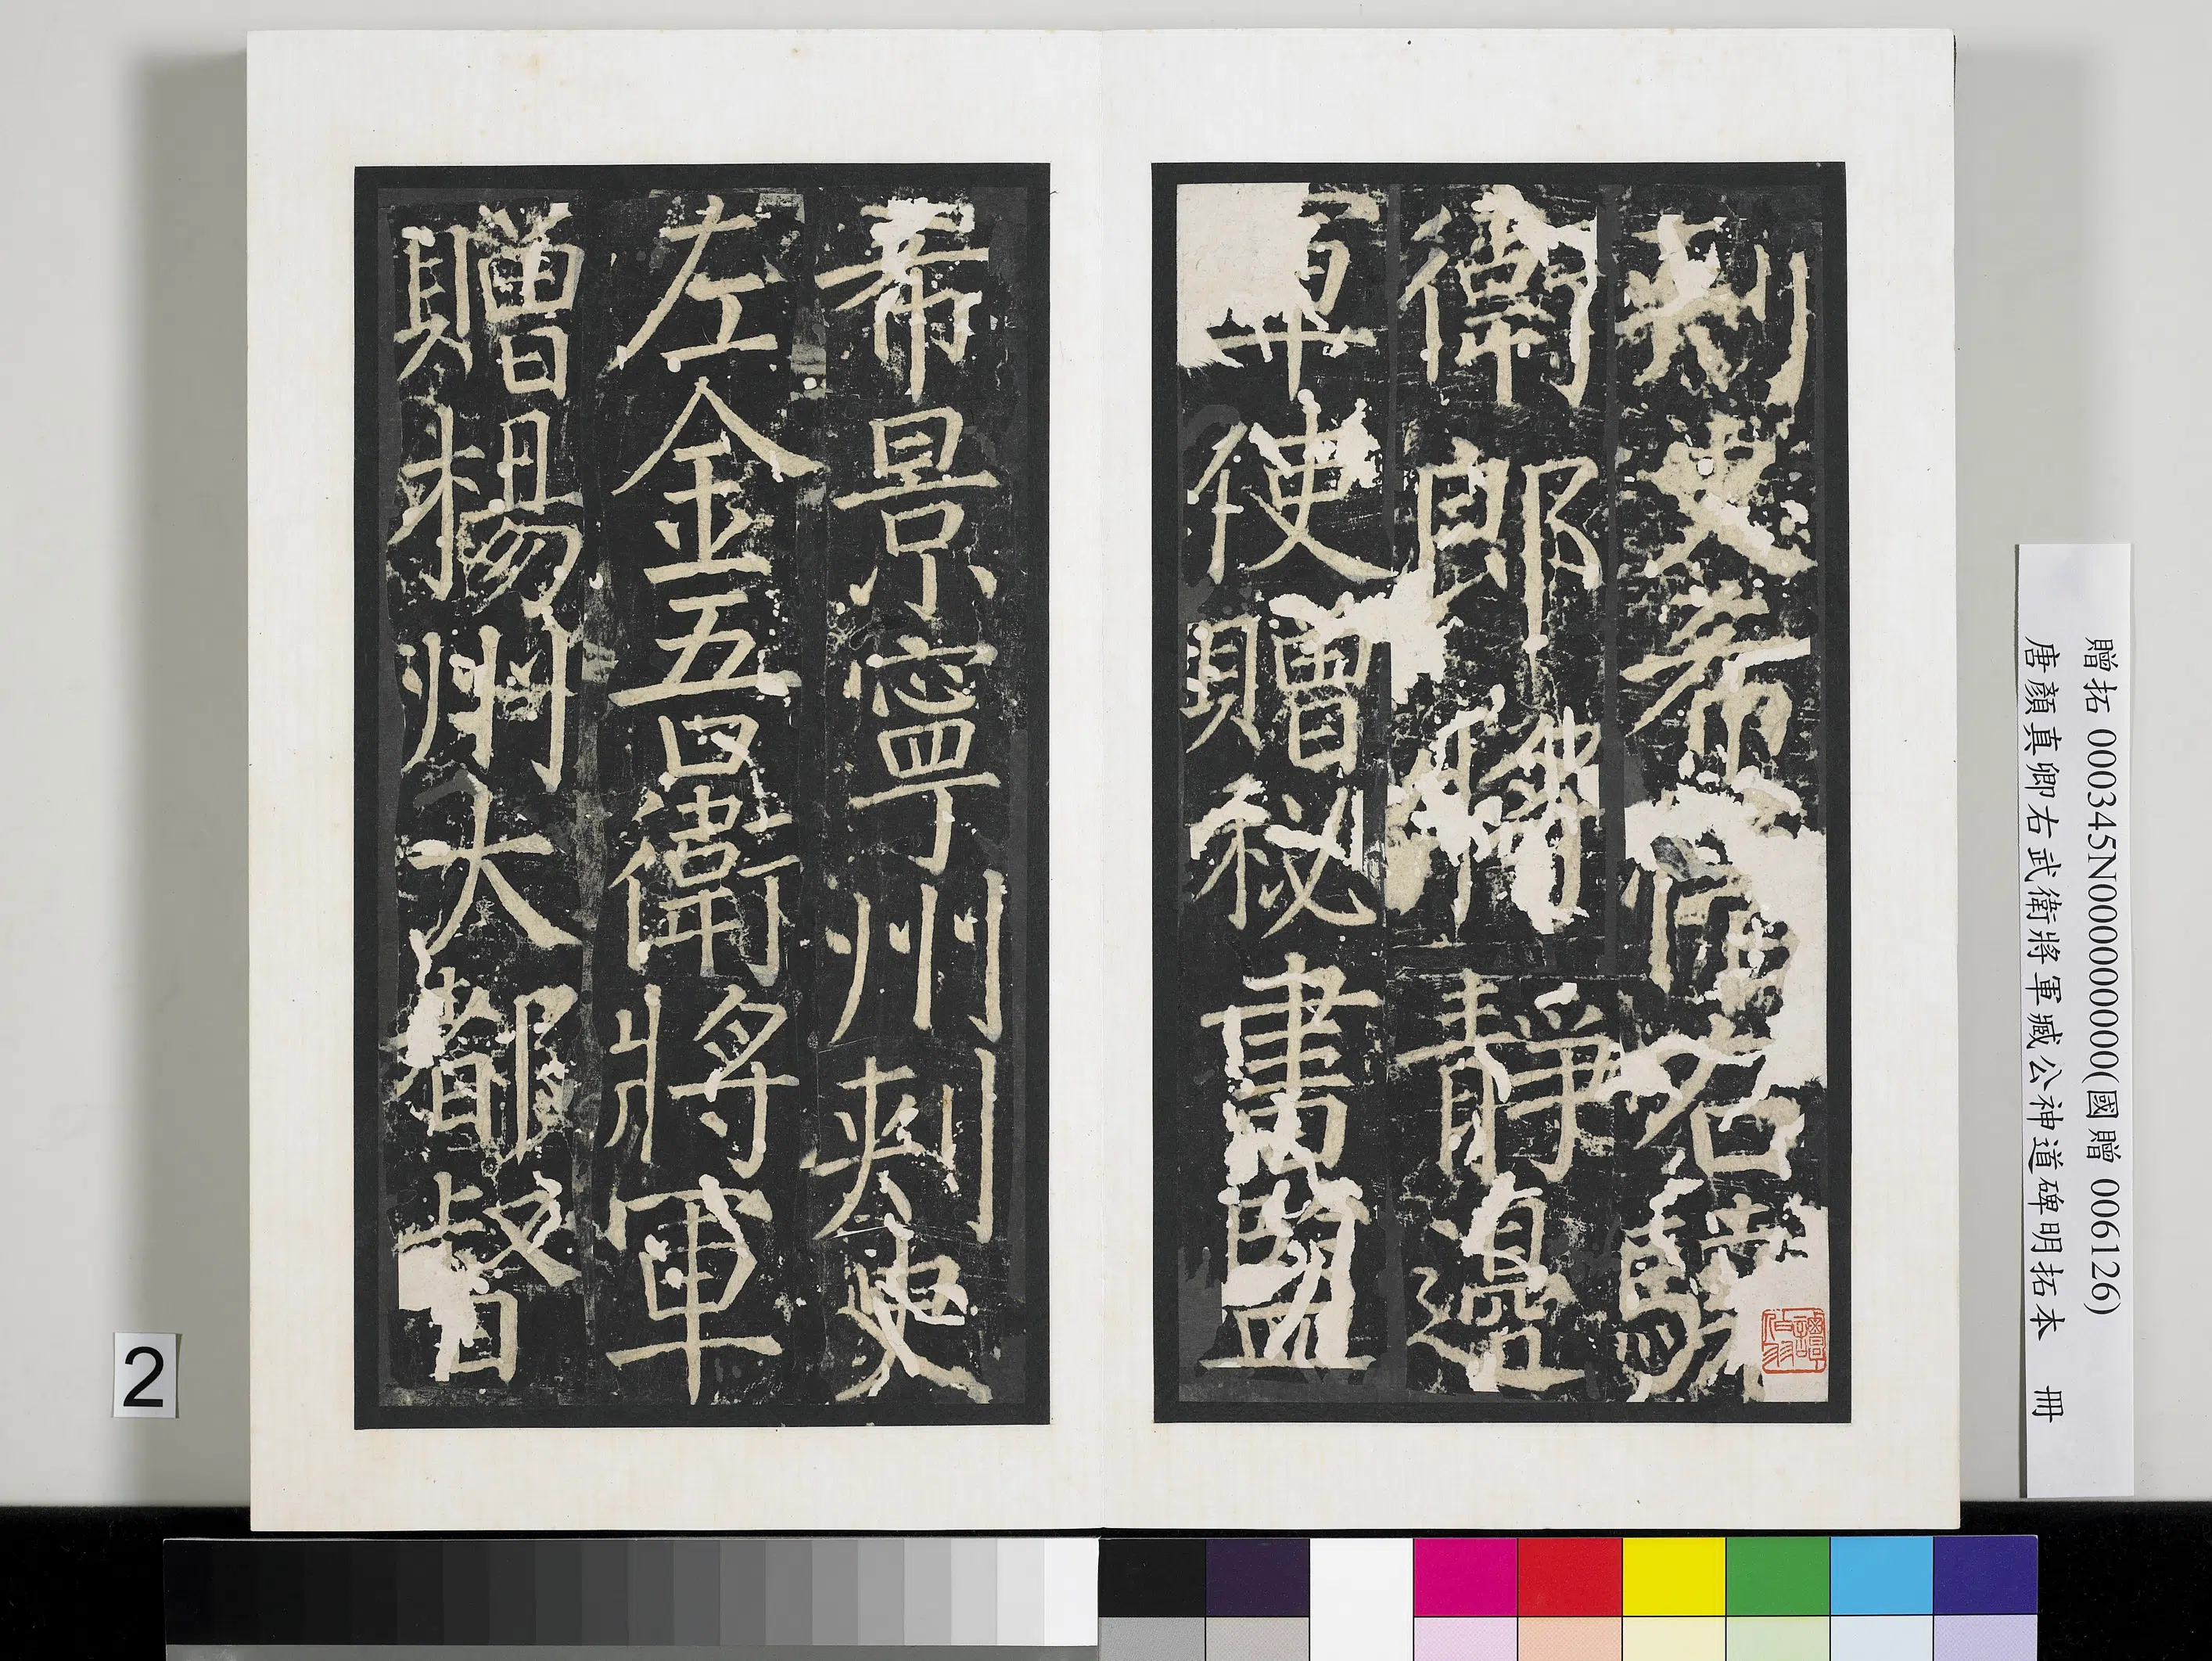 刺史希忱右驍
衛郎將靜邊
軍使贈秘書監
希景寧州刺史
左金吾衛將軍
贈楊州大都督
贈拓 000345N000000000(國贈 006126)
唐顏真卿右武衛將軍臧公神道碑明拓本 冊
2